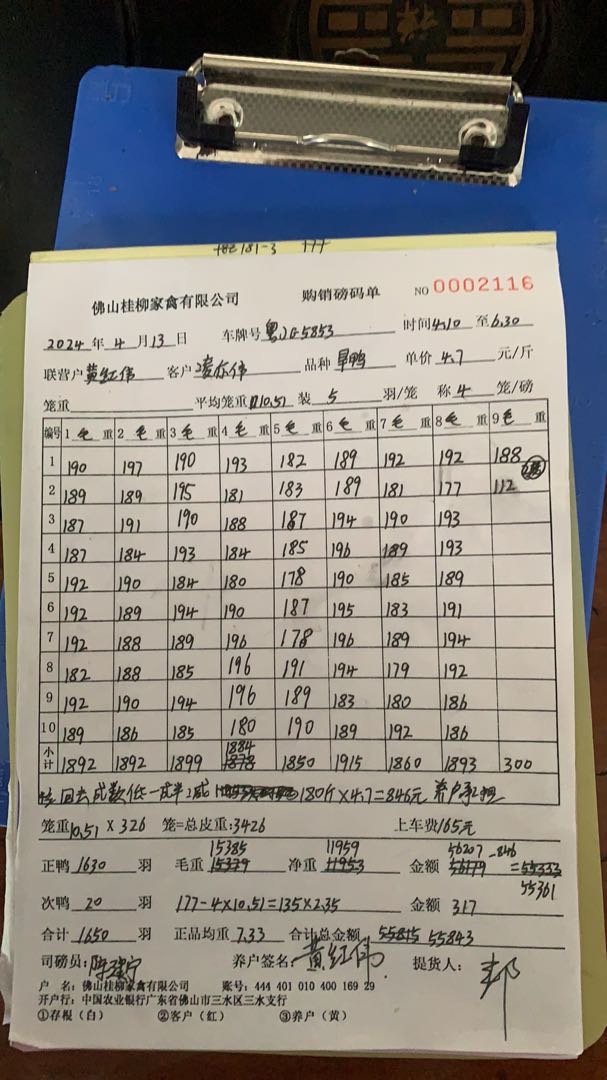 182 181-3 177
佛山桂柳家禽有限公司 购销磅码单 NO 0002116
2024 年 4 月 13 日 车牌号 粤JG5853 时间 4.10 至 6.30
联营户 黄红伟 客户 凌乐伟 品种 旱鸭 单价 4.7 元/斤
笼重 平均笼重 10.51 装 5 羽/笼 称 4 笼/磅
编号 1 毛 重 2 毛 重 3 毛 重 4 毛 重 5 毛 重 6 毛 重 7 毛 重 8 毛 重 9 毛 重
1 190 197 190 193 182 189 192 192 188
2 189 189 195 181 183 189 181 177 112
3 187 191 190 188 187 194 190 193
4 187 184 193 184 185 196 189 193
5 192 190 184 180 178 190 185 189
6 192 189 194 190 187 195 183 191
7 192 188 189 196 178 196 189 194
8 182 188 185 196 191 194 179 192
9 192 190 194 196 189 183 180 186
10 189 186 185 180 190 189 192 186
小计 1892 1892 1899 1884 1878 1850 1915 1860 1893 300
回去成数低一成半 减 180斤×4.7=846元 养户承担
笼重 10.51 × 326 笼=总皮重: 3426 上车费 165元
15385 11959 56207 -846
正鸭 1630 羽 毛重 15379 净重 11953 金额 56179 =55333
55361
次鸭 20 羽 177-4×10.51=135×2.35 金额 317
合计 1650 羽 正品均重 7.33 合计总金额 55815 55843
司磅员: 养户签名: 黄红伟 提货人:
户 名: 佛山桂柳家禽有限公司 账号: 444 401 010 400 169 29
开户行: 中国农业银行广东省佛山市三水区三水支行
①存根(白) ②客户(红) ③养户(黄)